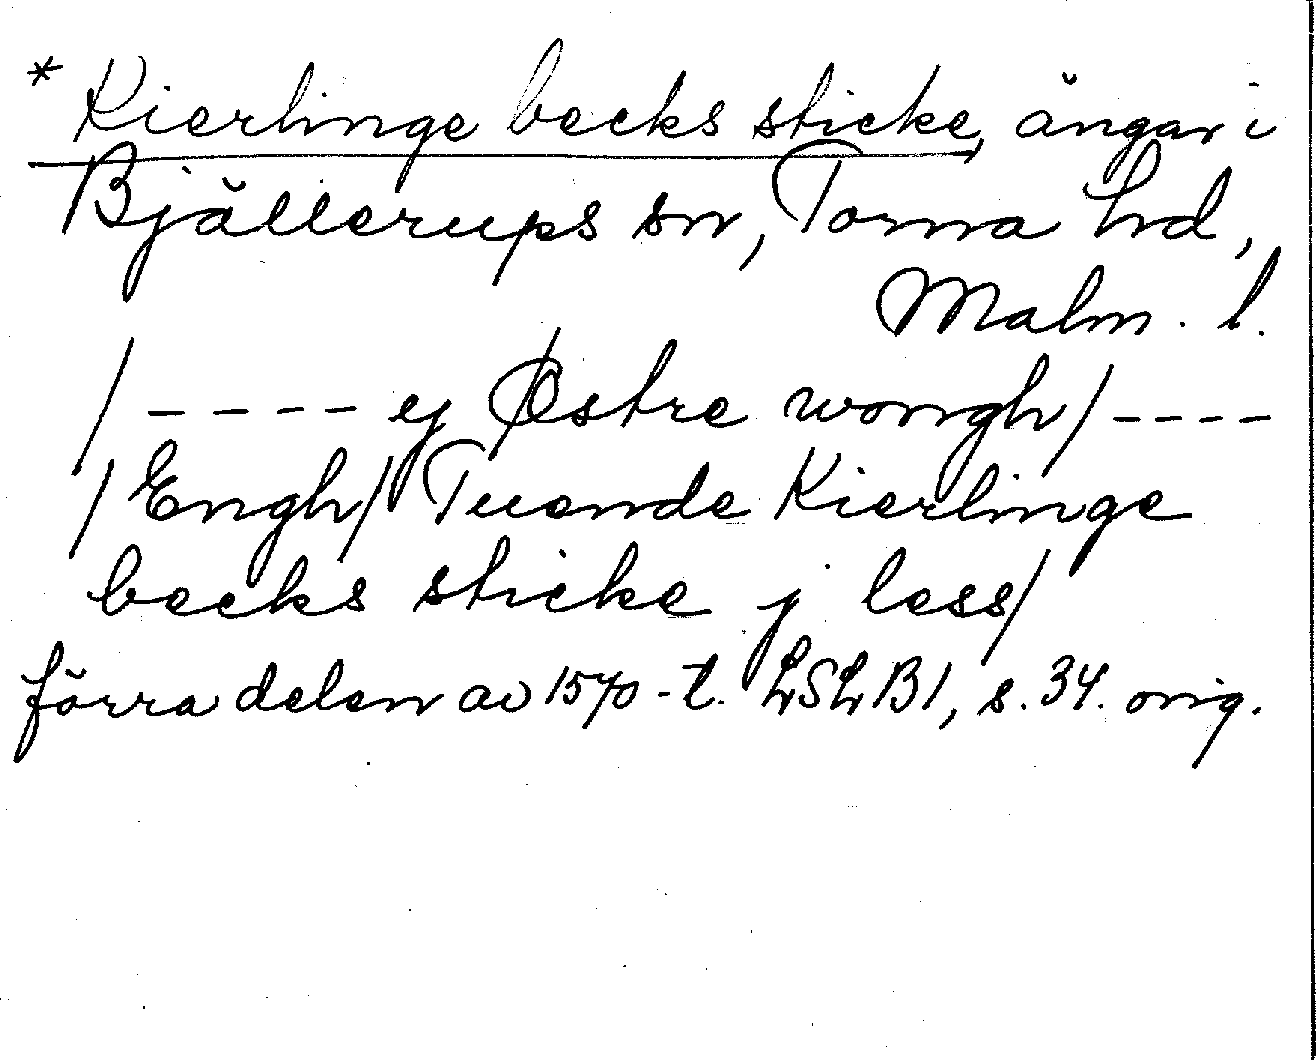 * Kierlinge becks sticke, ängar i
Bjällerups sn, Torna hd,
Malm. l.
/ - - - - ej Østre wongh/ - - - -
/Engh/ Tuende Kierlinge
becks sticke j less/
förra delen av 1570-t. LSLB1, s. 34. orig.